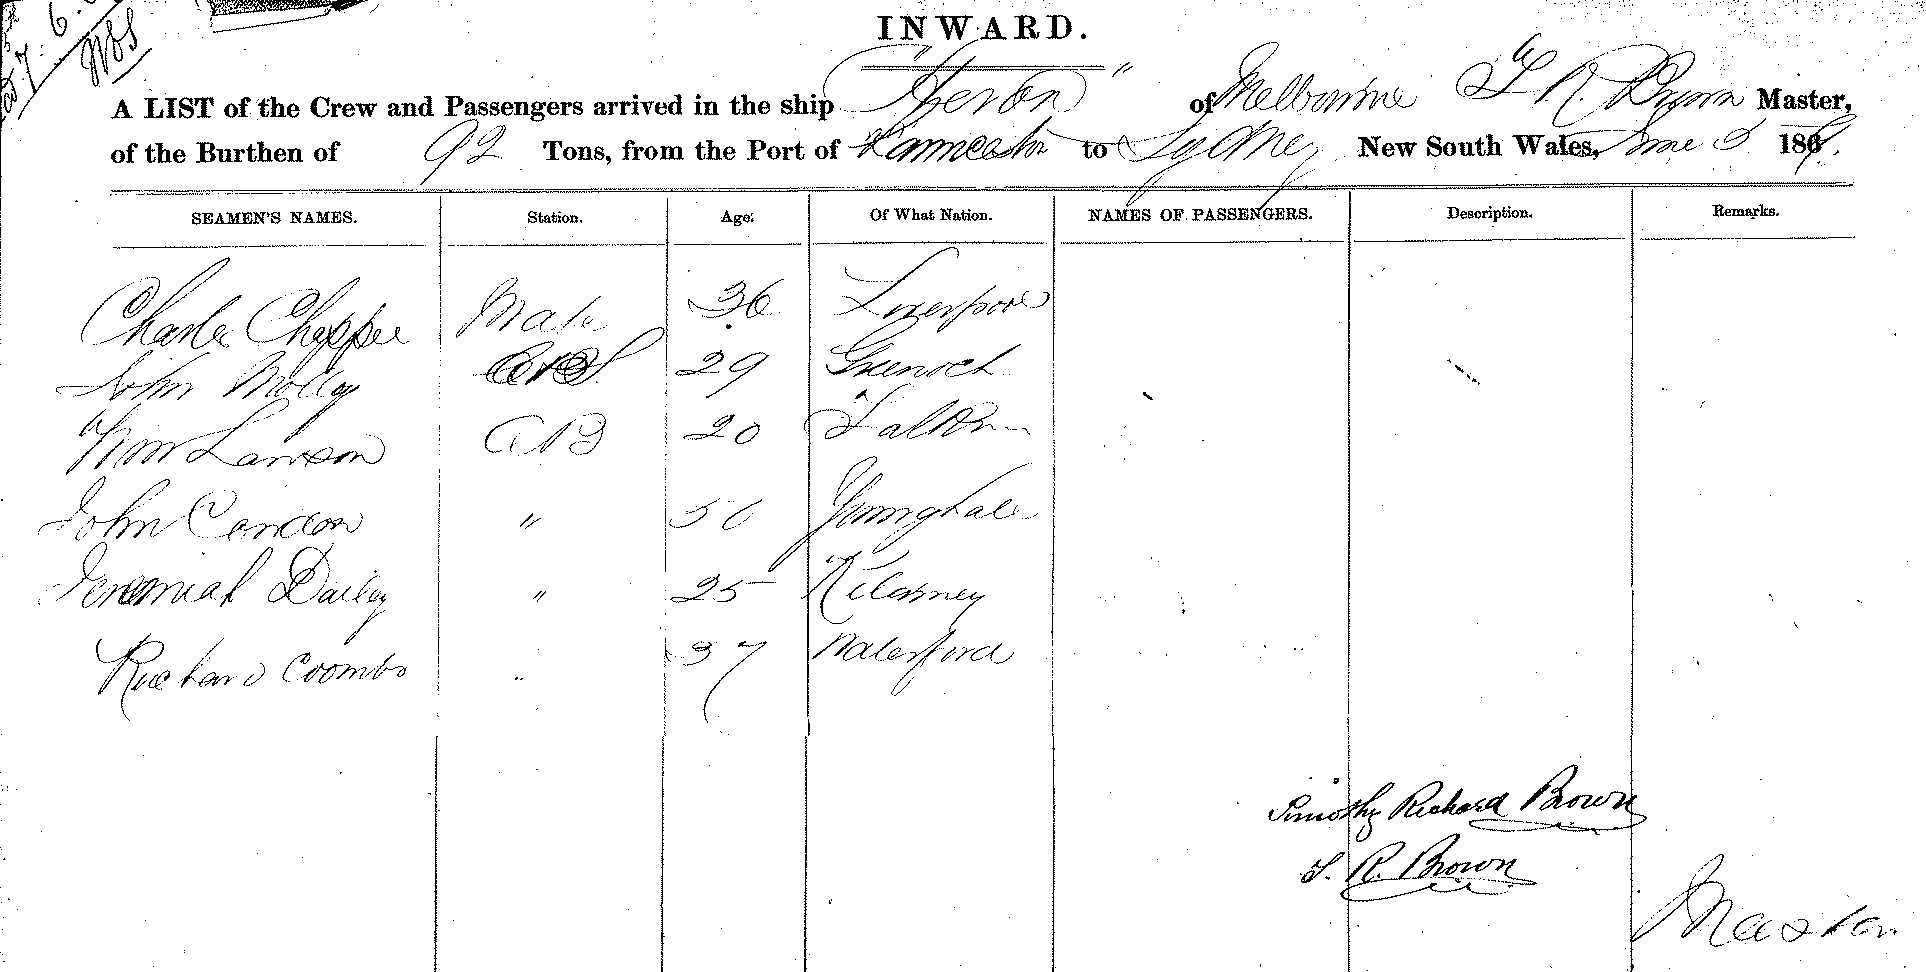 INWARD.
A LIST of the Crew and Passengers arrived in the ship "Heron" of Melbourne T R. Brown Master,
of the Burthen of 92 Tons, from the Port of Launceston to Sydney New South Wales, June 186
SEAMEN'S NAMES. Station. Age. Of What Nation. NAMES OF PASSENGERS. Description. Remarks.
Mate 36 Liverpool
John 29 Greenock
Wm Lawson AB 20
John Condon "
Jeremiah Dailey " 25 Kilarney
Richard Coombs " 37 Waterford
Timothy Richard Brown
T. R. Brown
Master